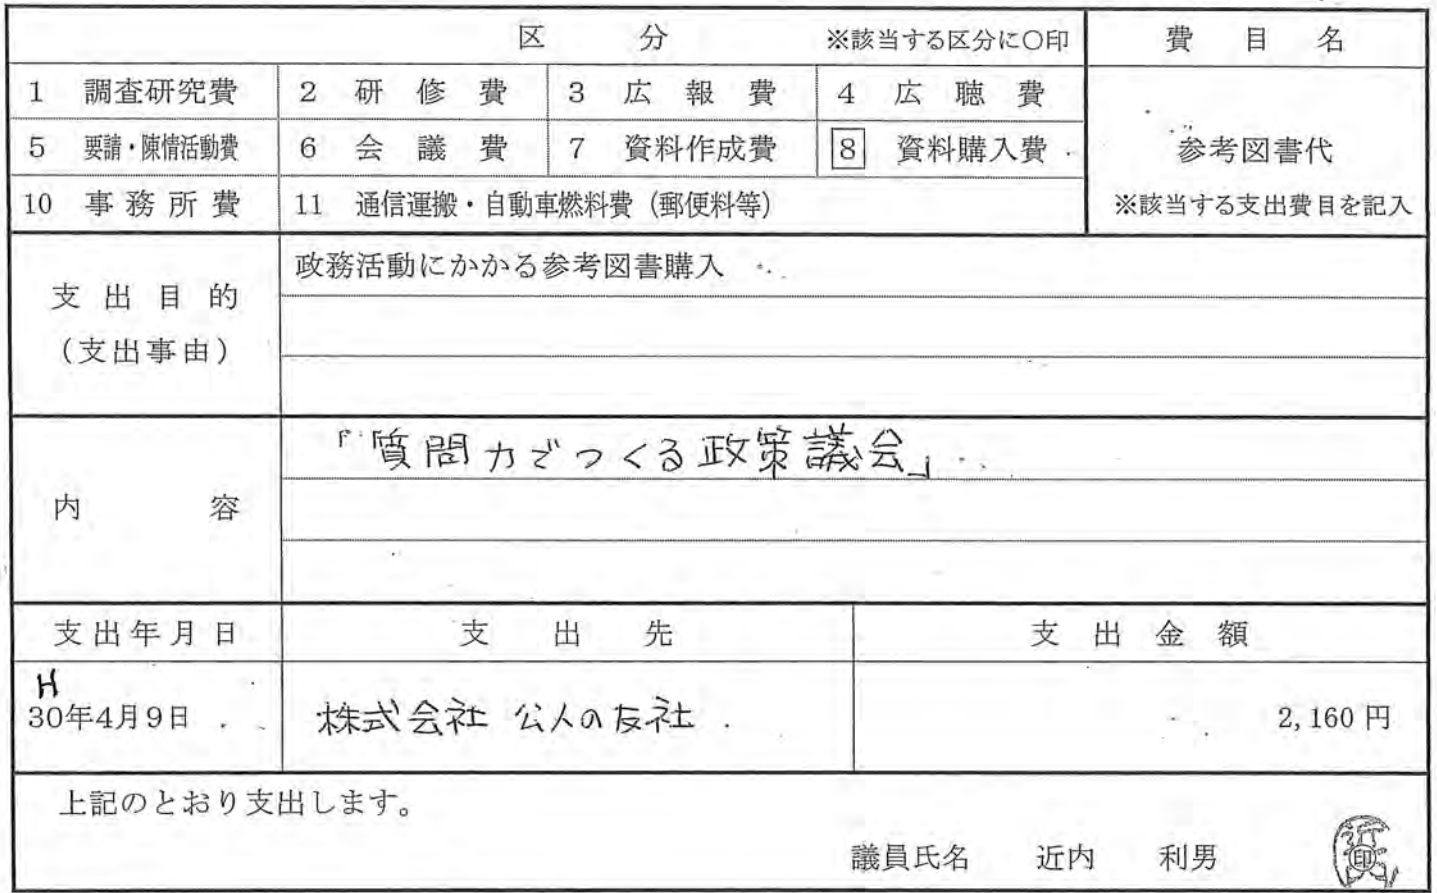 区 分 ※該当する区分に○印 費 目 名
1 調査研究費 2 研 修 費 3 広 報 費 4 広 聴 費
5 要請・陳情活動費 6 会 議 費 7 資料作成費 8 資料購入費 参考図書代
10 事 務 所 費 11 通信運搬・自動車燃料費（郵便料等） ※該当する支出費目を記入
支 出 目 的
（支出事由）
政務活動にかかる参考図書購入
内 容
『質問力でつくる政策議会』
支出年月日 支 出 先 支 出 金 額
H
30年4月9日 株式会社 公人の友社 2,160円
上記のとおり支出します。
議員氏名 近内 利男 近
印